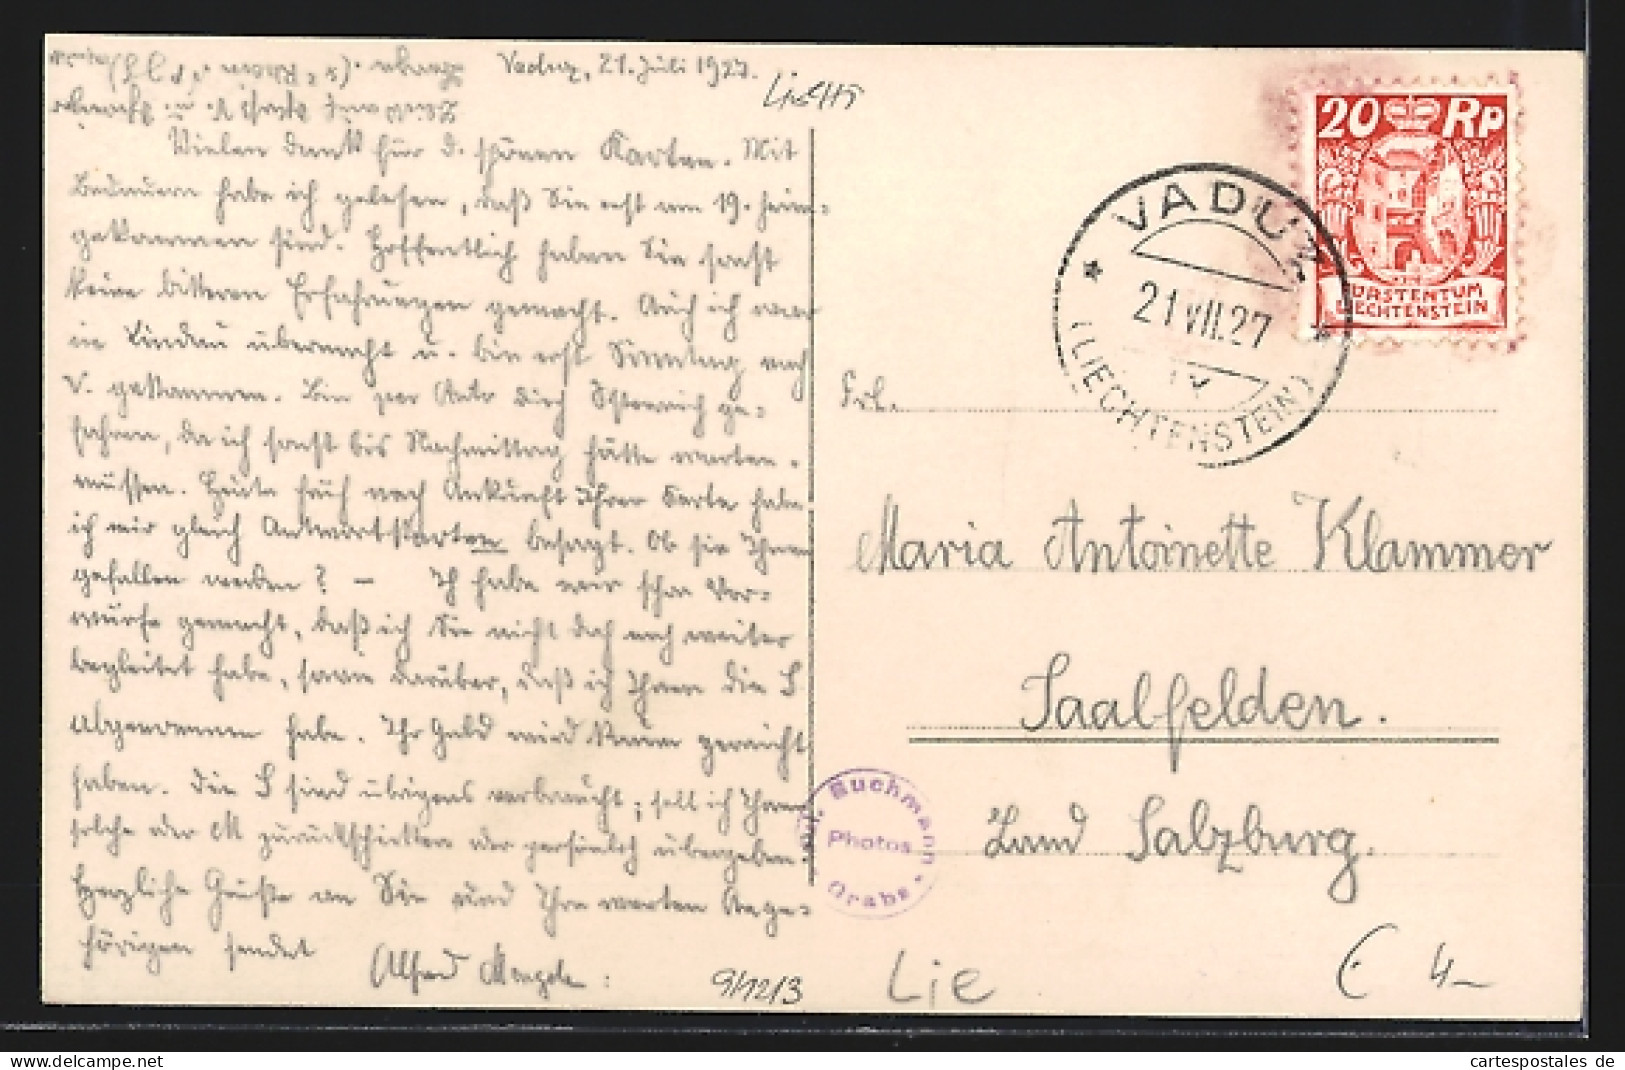 Vaduz, 21. Juli 1927.
Vielen Dank für d. schönen Karten. Mit
Bedauern habe ich gelesen, daß Sie erst am 19. heim=
gekommen sind. Hoffentlich haben Sie sonst
keine bitteren Erfahrungen gemacht. Auch ich war
in Lindau übernacht u. bin erst Sonntag nach
V. gekommen. Bin per Auto durch Österreich ge=
fahren, da ich sonst bis Nachmittag hätte warten
müssen. Heute früh nach Ankunft Ihrer Karte habe
ich mir gleich Antwortkarten besorgt. Ob sie Ihnen
gefallen werden? — Ich habe mir schon Vor=
würfe gemacht, daß ich Sie nicht doch noch weiter
begleitet habe, sowie darüber, daß ich Ihnen die S
abgenommen habe. Ihr Geld wird kaum gereicht
haben. Die S sind übrigens verbraucht; soll ich Ihnen
solche oder M zurückschicken oder persönlich übergeben.
Herzliche Grüße an Sie und Ihre werten Ange=
hörigen sendet Alfred
20 Rp
FÜRSTENTUM
LIECHTENSTEIN
VADUZ
21 VII. 27
(LIECHTENSTEIN)
Frl.
Maria Antoinette Klammer
Saalfelden.
Land Salzburg.
Buchmann
Photos
Grabs
9/12/3
Lie
€ 4–
cartespostales de